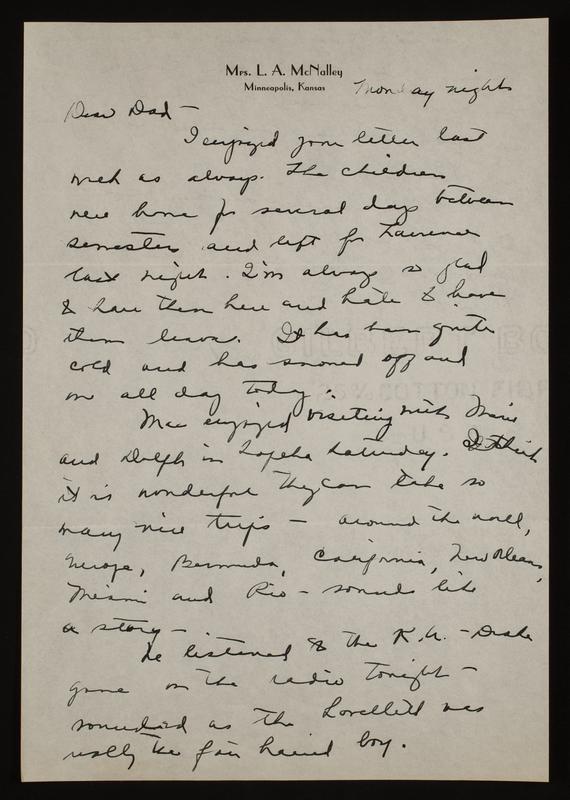 Mrs. L. A. McNalley
Minneapolis, Kansas
Monday night
Dear Dad —
I enjoyed your letter last
week as always. The children
were home for several days between
semesters and left for Lawrence
last night. I'm always so glad
to have them here and hate to have
them leave. It has been quite
cold and has snowed off and
on all day today.
Mac enjoyed visiting with Marie
and Dolph in Topeka Saturday. I think
it is wonderful they can take so
many nice trips — around the world,
Europe, Bermuda, California, New Orleans,
Miami and Rio — sounds like
a story —
We listened to the K.U. — Drake
game on the radio tonight —
sounded as tho Lovellette was
really the fair haired boy.